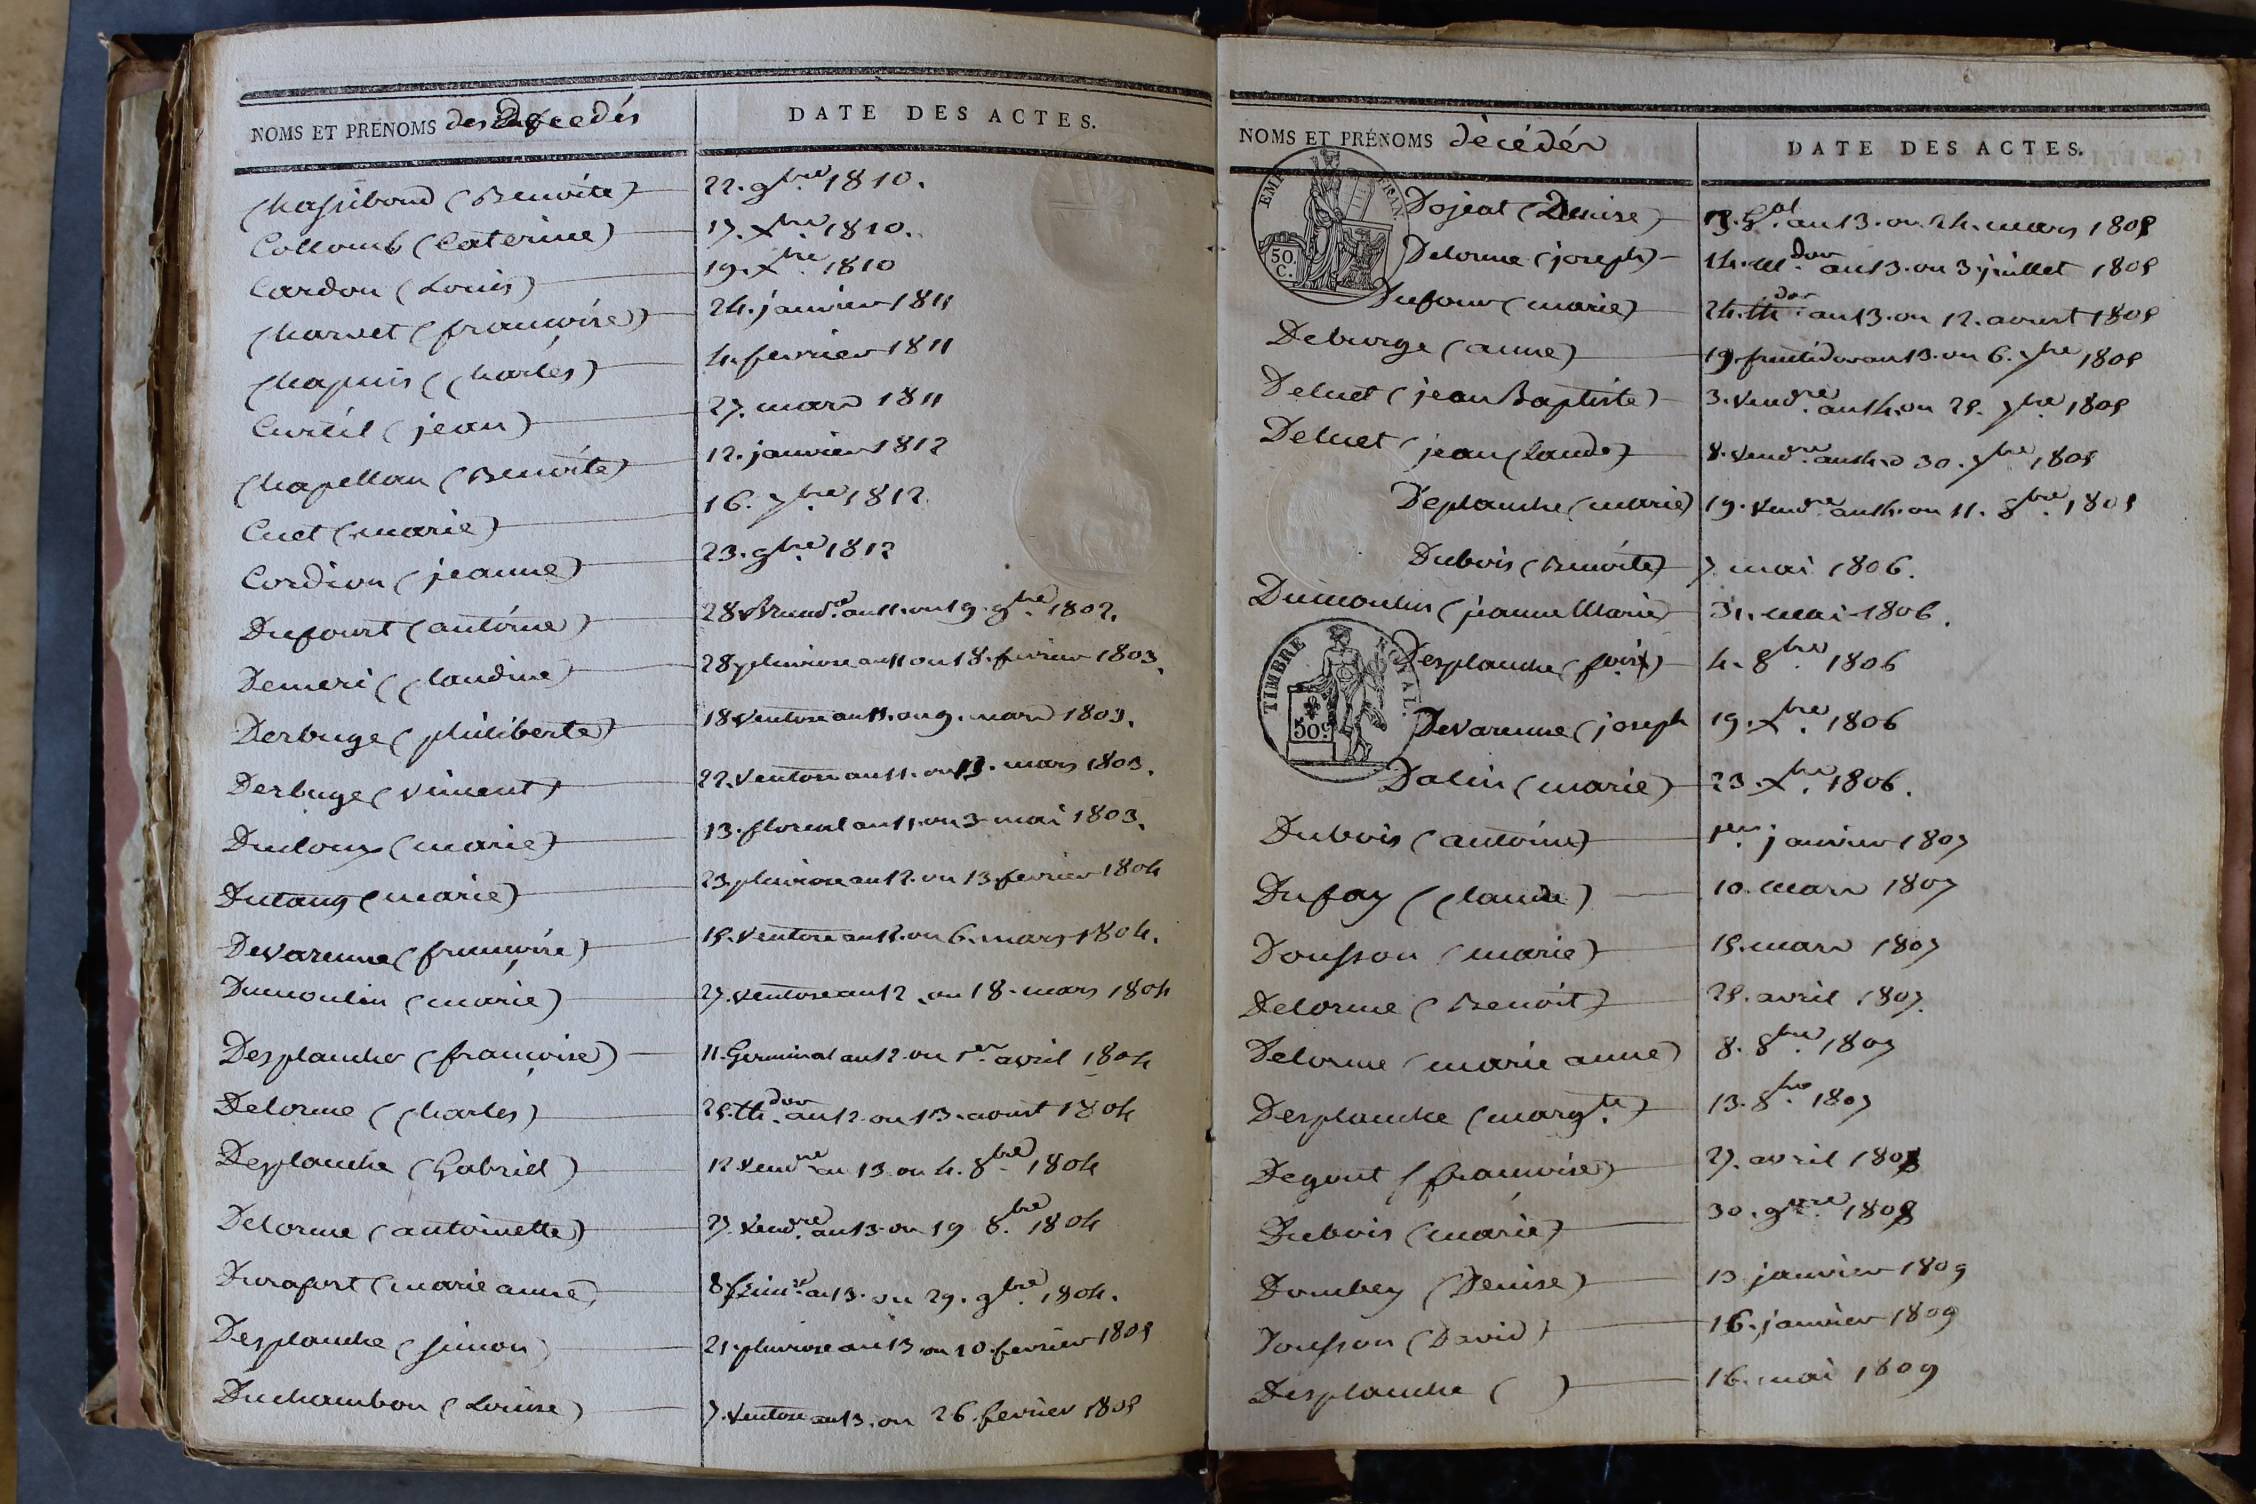 NOMS ET PRÉNOMS des Décedés
DATE DES ACTES.
Chassiboud (Benoite) 22. 9bre 1810.
Collomb (Caterine) 17. Xbre 1810.
Cardon (Louis) 19. Xbre 1810
Charvet (françoise) 24. janvier 1811
Chapuis (Charles) 4. fevrier 1811
Curtil (jean) 27. mars 1811
Chapellan (Benoite) 12. janvier 1812
Cuet (marie) 16. 7bre 1812.
Cordion (jeanne) 23. 9bre 1812
Dufourt (antoine) 28 an 11. ou 19. 9bre 1802.
Demeri (Claudine) 28 pluviose an 11 ou 18. fevrier 1803.
Derbuge (philiberte) 18 Ventose an 11. ou 9. mars 1803.
Derbuge (Vincent) 22. Ventose an 11. ou 13. mars 1803.
Ducloux (marie) 13. floreal an 11. ou 3 mai 1803.
Dutang (marie) 23 pluviose an 12. ou 13 fevrier 1804
Devarenne (françoise) 15. Ventose an 12. ou 6. mars 1804.
Dumoulin (marie) 27. Ventose an 12. ou 18. mars 1804
Desplanche (françoise) 11. Germinal an 12. ou 1er. avril 1804
Delorme (Charles) 25. th.dor an 12 ou 13. aoust 1804
Desplanche (Gabriel) 12 Vend.re an 13 ou 4. 8bre 1804
Delorme (antoinette) 27. Vend.re an 13 ou 19 8.bre 1804
Durafort (marie anne) 8 frim.re an 13. ou 29. 9bre 1804.
Desplanche (simon) 21. pluviose an 13 ou 10. fevrier 1805
Duchambon (Louise) 7. Ventose an 13. ou 26. fevrier 1805
NOMS ET PRÉNOMS décédés
DATE DES ACTES.
EMP FRAN.
50. C.
Dojeat (Denise) G.al an 13. ou 24. mars 1805
Delorme (joseph) 14. M.dor an 13. ou 3. juillet 1805
Dufour (marie) 24. th.dor an 13. ou 12. aoust 1805
Deburge (anne) 19. fructidor an 13. ou 6. 7bre 1805
Deluet (jean Baptiste) 3. Vend.re an 14. ou 25. 7bre 1805
Deluet (jean Claude) 8. Vend.re an 14. 30. 7bre 1805
Deplanche (marie) 19. Vend.re an 14. ou 11. 8bre. 1805
Dubois (Benoite) 7 mai 1806.
Dumoulin (jeanne Marie) 31. mai 1806.
TIMBRE ROYAL.
50c.
Desplanche 4. 8bre. 1806
Devarenne (joseph 19. Xbre. 1806
Dalin (marie) 23. Xbre. 1806.
Dubois (antoine) 1er. janvier 1807
Dufay (Claude) 10. mars 1807
Dousson (marie) 15. mars 1807
Delorme (Benoit) 25. avril 1807.
Delorme (marie anne) 8. 8bre. 1807
Desplanche (marg.te) 13. 8bre. 1807
Degout (françoise) 27. avril 1808
Dubois (marie) 30. 9bre. 1808
Dombey (Denise) 13 janvier 1809
Dousson (David) 16. janvier 1809
Desplanche ( ) 16. mai 1809